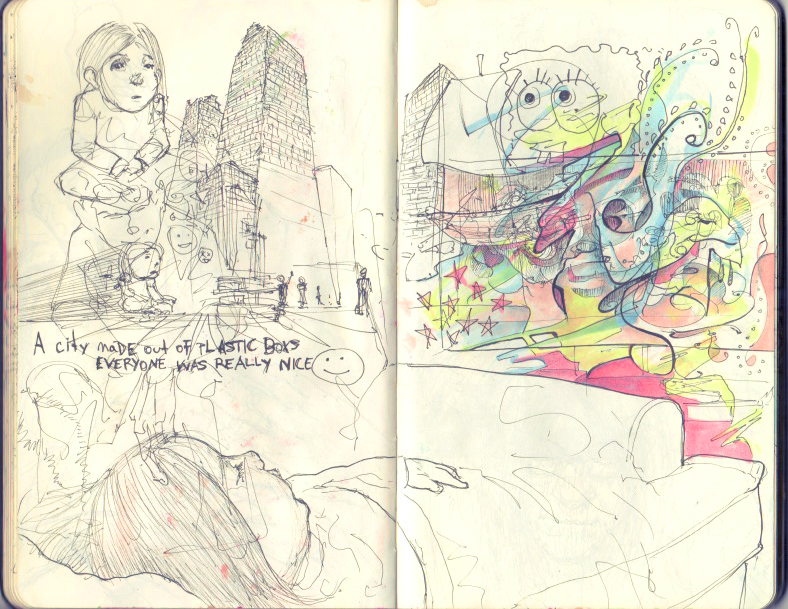 A city mADE out of PLASTIC BOYS
EVERYONE WAS REALLY NICE